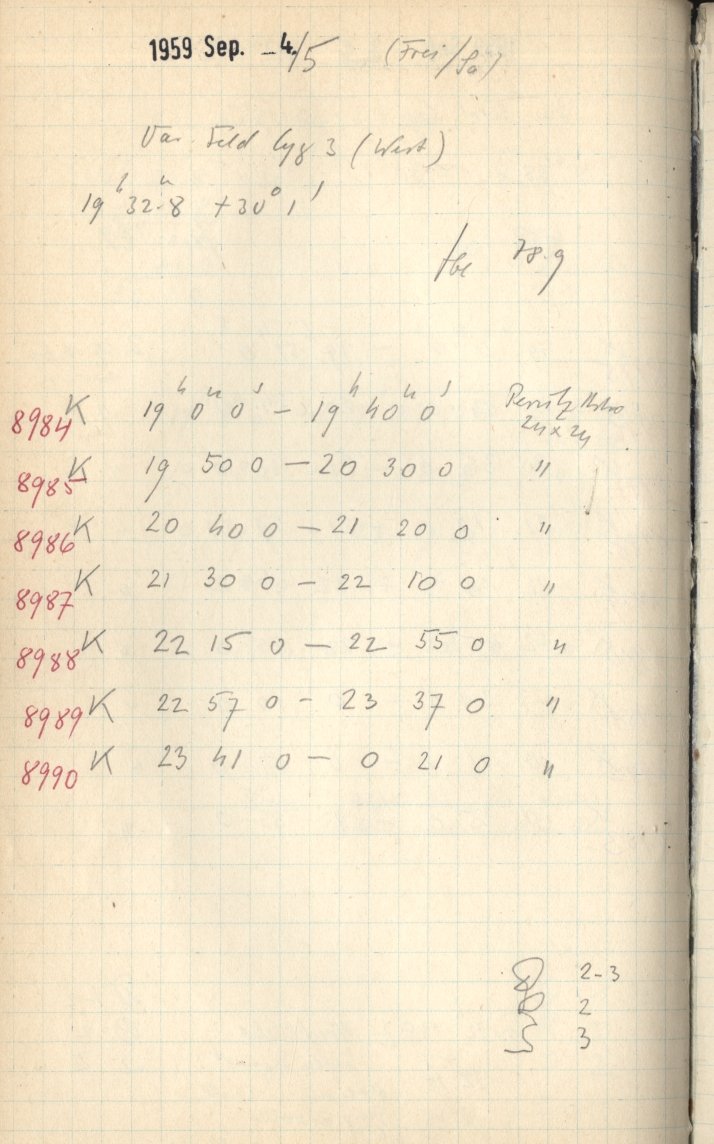 1959 Sep. -4./5 (Frei/Sa)
Var. Feld Cyg 3 (West)
19ʰ 32ᵐ.8 +30° 1'
78.9
8984 K 19ʰ 0ᵐ 0ˢ – 19ʰ 40ᵐ 0ˢ Perutz Astro
24 x 24
8985 K 19 50 0 – 20 30 0 "
8986 K 20 40 0 – 21 20 0 "
8987 K 21 30 0 – 22 10 0 "
8988 K 22 15 0 – 22 55 0 "
8989 K 22 57 0 – 23 37 0 "
8990 K 23 41 0 – 0 21 0 "
2-3
2
3